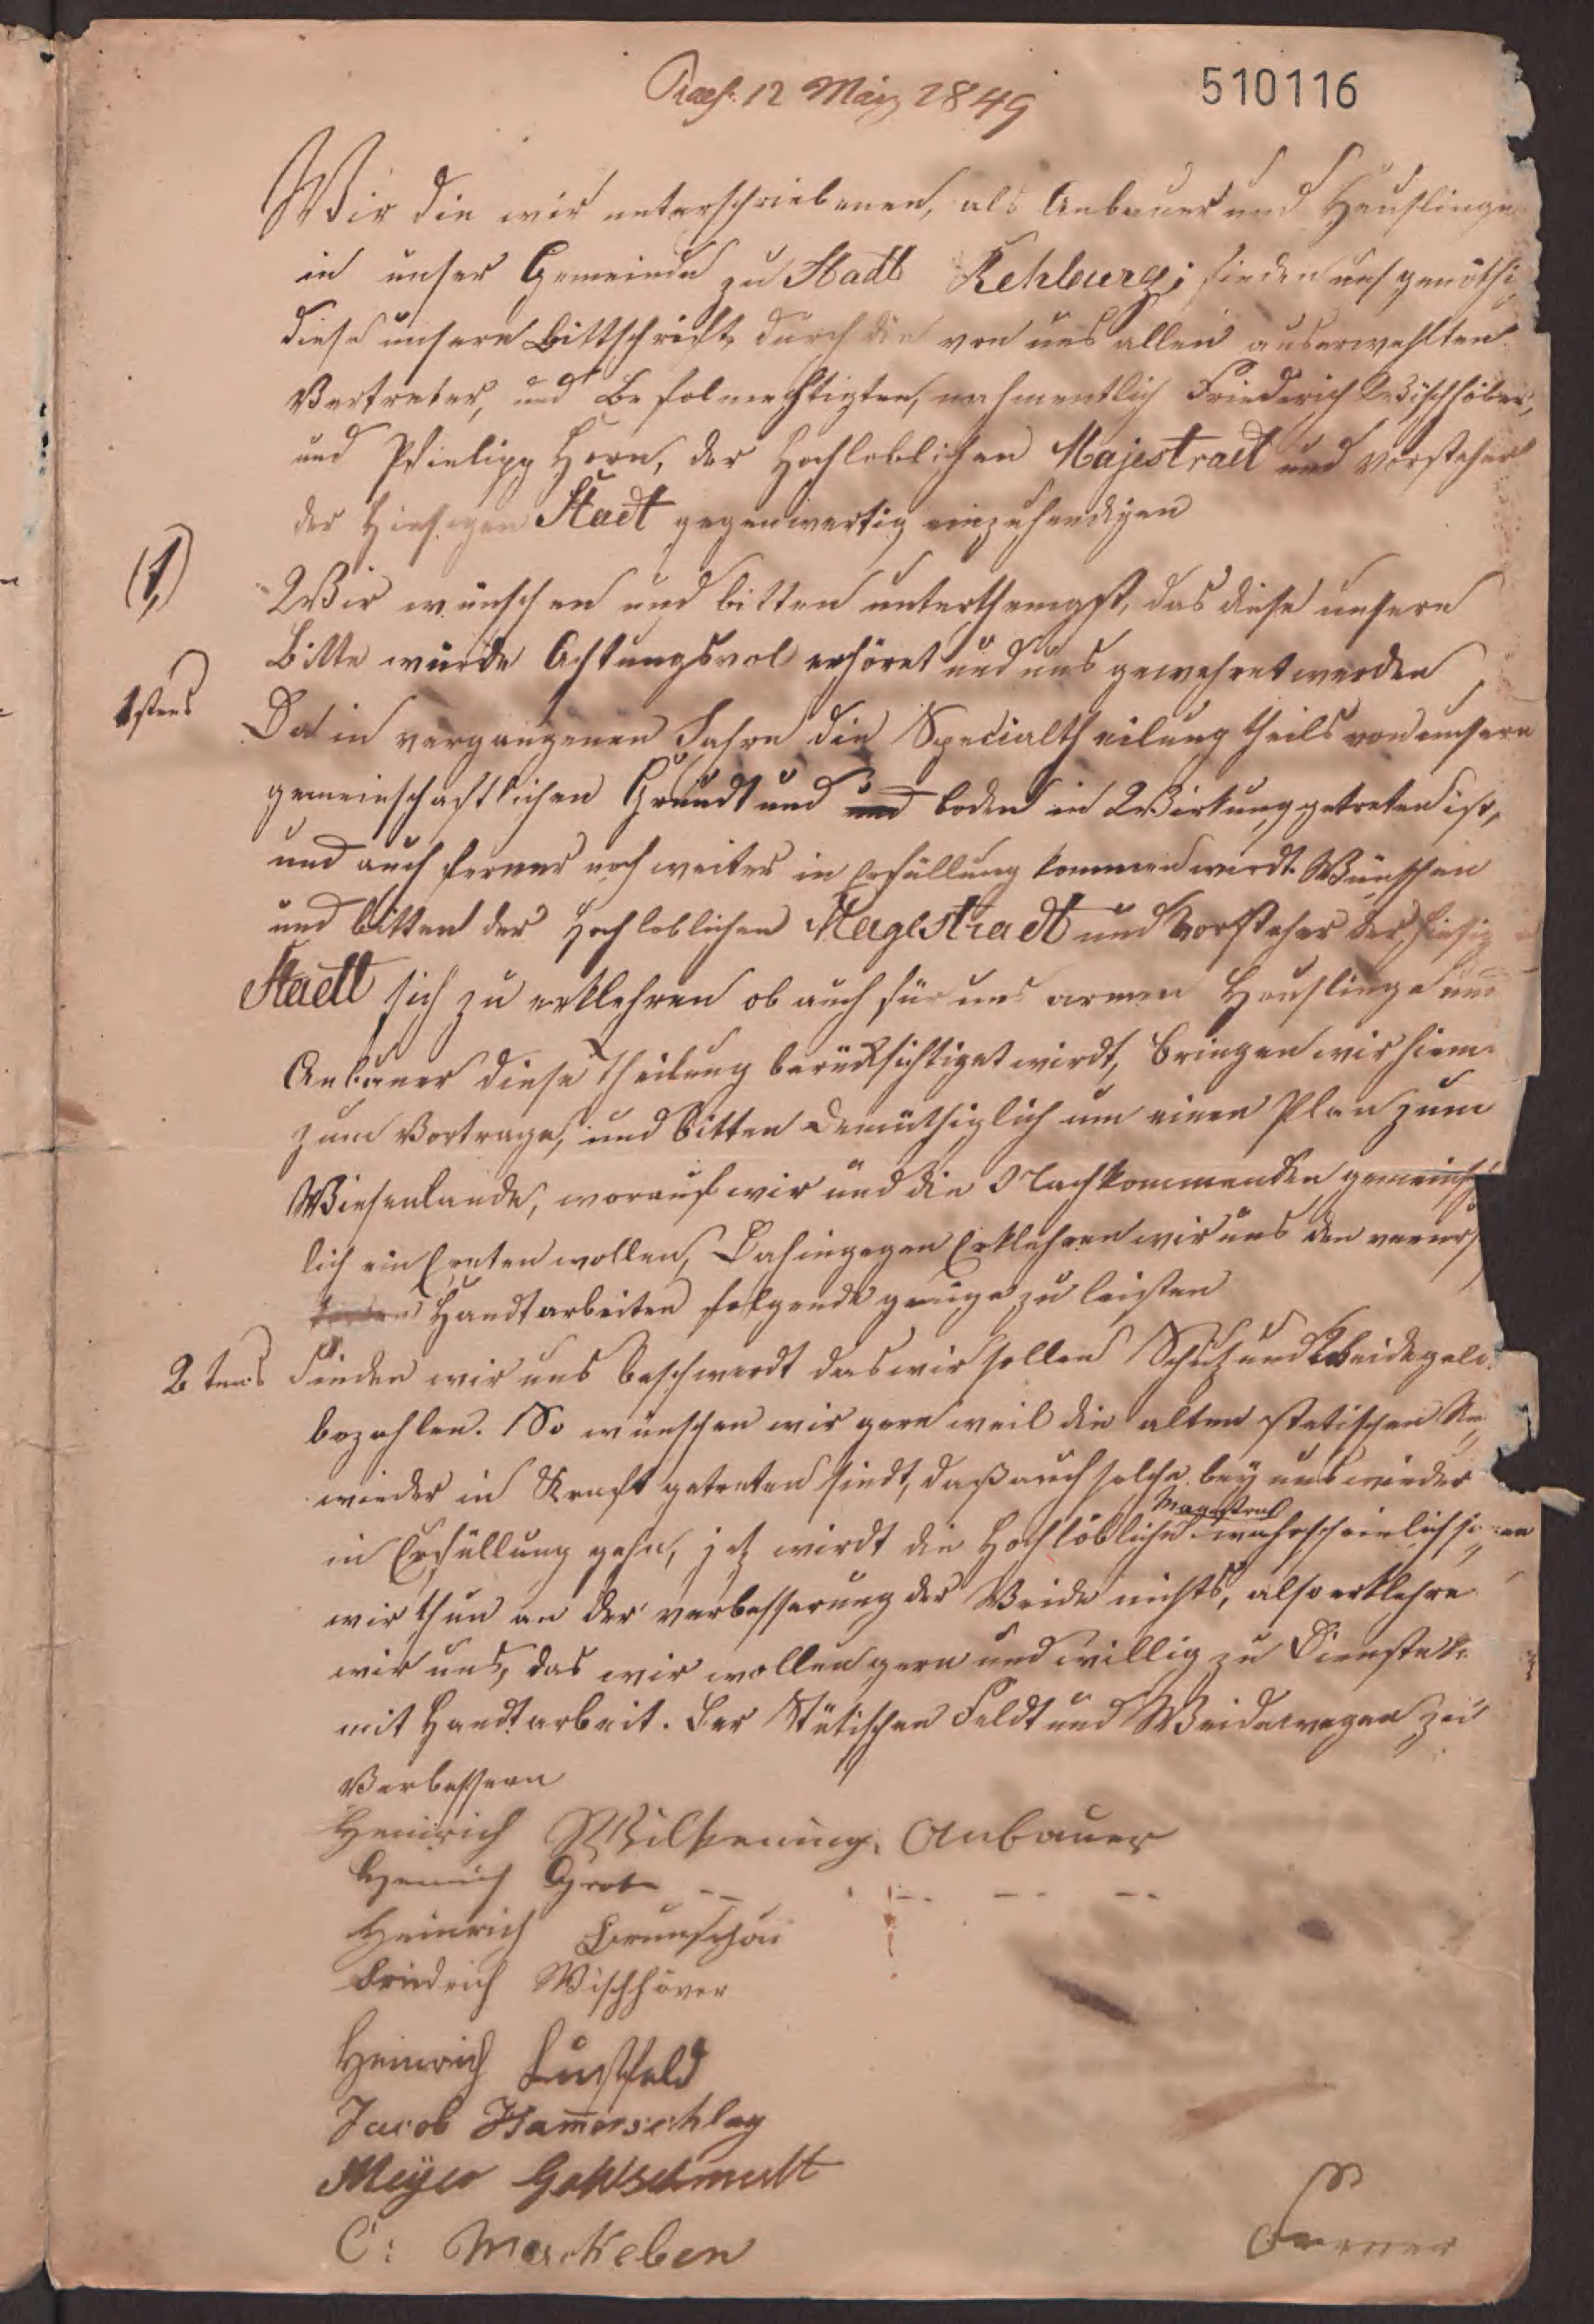 Praes. 12 März 1849
510116
Wir die wir unterschriebenen, als Anbauer und Häuslinge
in unser Gemeinde zu Stadt Rehburg; finden uns genöthi
diese unsere Bittschrift durch die von uns allen auserwehlten
Vertreter, und Befolmechtigten, nahmentlich Friederich Wischhöber,
und Philipp Horn, der Hochloblichen Majestraet und Vorsteher
der Hiesigen Stadt gegenwertig einzuhendigen
(1,)
Wir wünschen und bitten unterthenigst, das diese unsere
Bitte würde Achtungsvol erhöret und uns gewehret werden
1stens
Da in vergangenen Jahre die Specialtheilung theils von unsern
gemeinschaftlichen Grundt und und boden in Wirkung getreten ist,
und auch ferner noch weiter in Erfüllung kommen wirdt. Wünschen
und bitten der Hochloblichen Magestradt und Vorsteher der hiesig
Stadt sich zu erklehren ob auch für uns armen Heuslinge und
Anbauer diese theilung berücksichtiget wirdt, bringen wir hiem
zum Vortrage, und bitten Demüthiglich um einen Plan zum
Wiesenlande, worauf wir und die Nachkommenden gemeinsch
lich ein Ernten wollen, Dahingegen Erklehren wir uns den
Handtarbeiten folgende genüge zu leisten
2tens
Finden wir uns beschwerdt das wir sollen Schutz und Weidegeld
bezahlen. So wünschen wir gern weil die alten stetischen Re
wieder in Kraft getreten sindt, daß auch solche bey uns wieder
Magestrat
in Erfüllung gehn, jetz wirdt die Hochlöbliche wahrscheinlich
wir thun an der verbesserung der Weide nichts, also erklehre
wir uns, das wir wollen gern und willig zu Dienste
mit Handtarbeit. Der Stetischen Feldt und Weidewegen zu
Verbessern
Heinrich Wilkening, Anbauer
Heinrich Grote
Heinrich Brunschön
Friedrich Wischhöver
Heinrich Lustfeld
Jacob Hammerschlag
Meyer Goldschmidt
C: Markeben